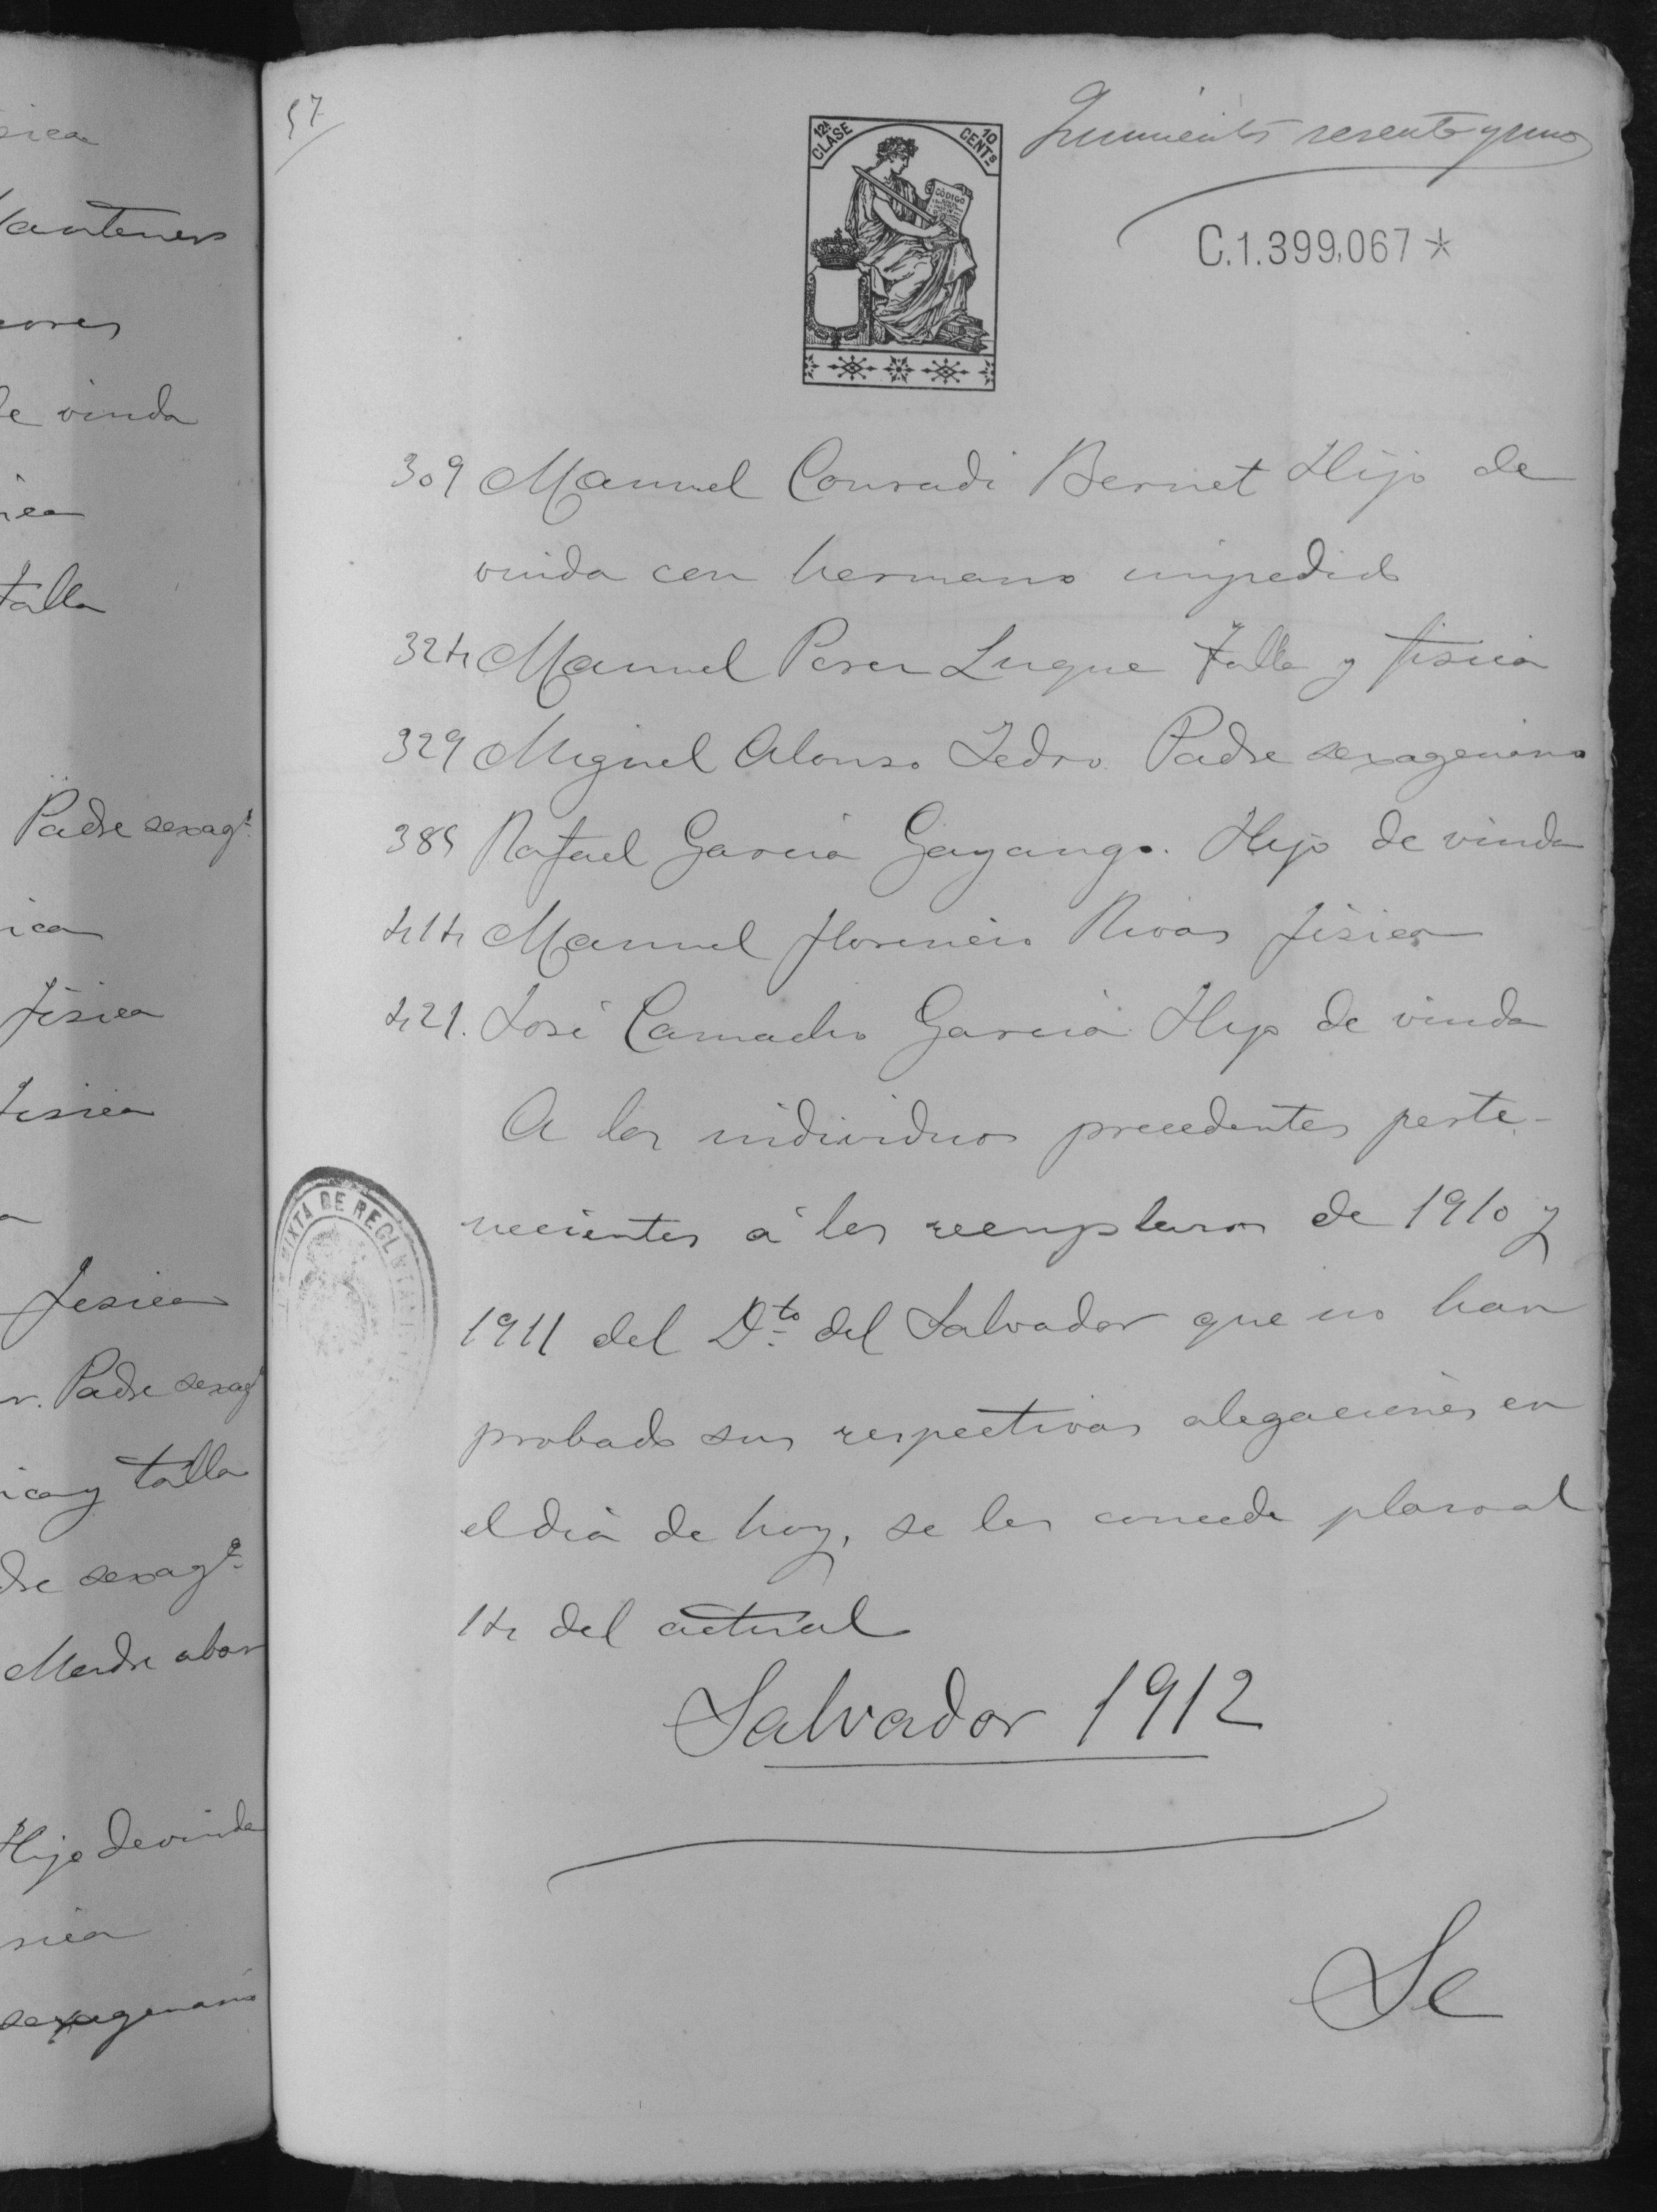 sica
antener
ores
de viuda
ica
talla
Padre sexagº
ica
física
física
a
física
r. Padre sexagº
ica y talla
dre sexagº
Madre aban
Hijo de viuda
sica
sexagenario
57
12ª CLASE
10 CENTS
CÓDIGO
Quinientos sesenta y uno
C.1.399,067 *
309 Manuel Conradi Bernet Hijo de
viuda con hermano impedido
324 Manuel Perez Luque Talla y física
329 Miguel Alonso Tedro Padre sexagenario
385 Rafael García Gayango. Hijo de viuda
414 Manuel Florencio Rivas física
421. José Camacho García Hijo de viuda
A los individuos precedentes perte-
necientes á los reemplazos de 1910 y
1911 del Dto del Salvador que no han
probado sus respectivas alegaciones en
el día de hoy, se les concede plazo al
14 del actual
MIXTA DE RECLUTAM
Salvador 1912
Se